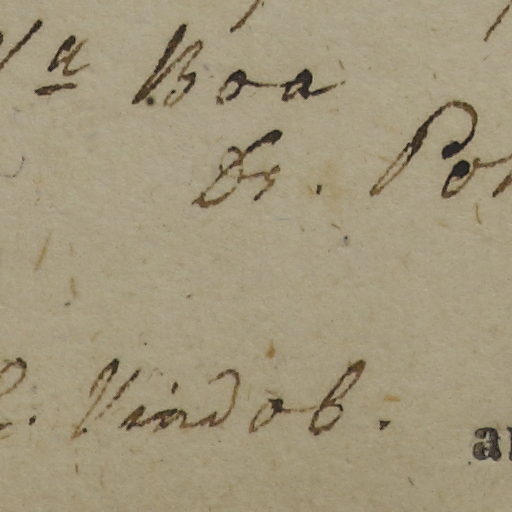 Va Boa
Dr. Poh
. Vindob.
a